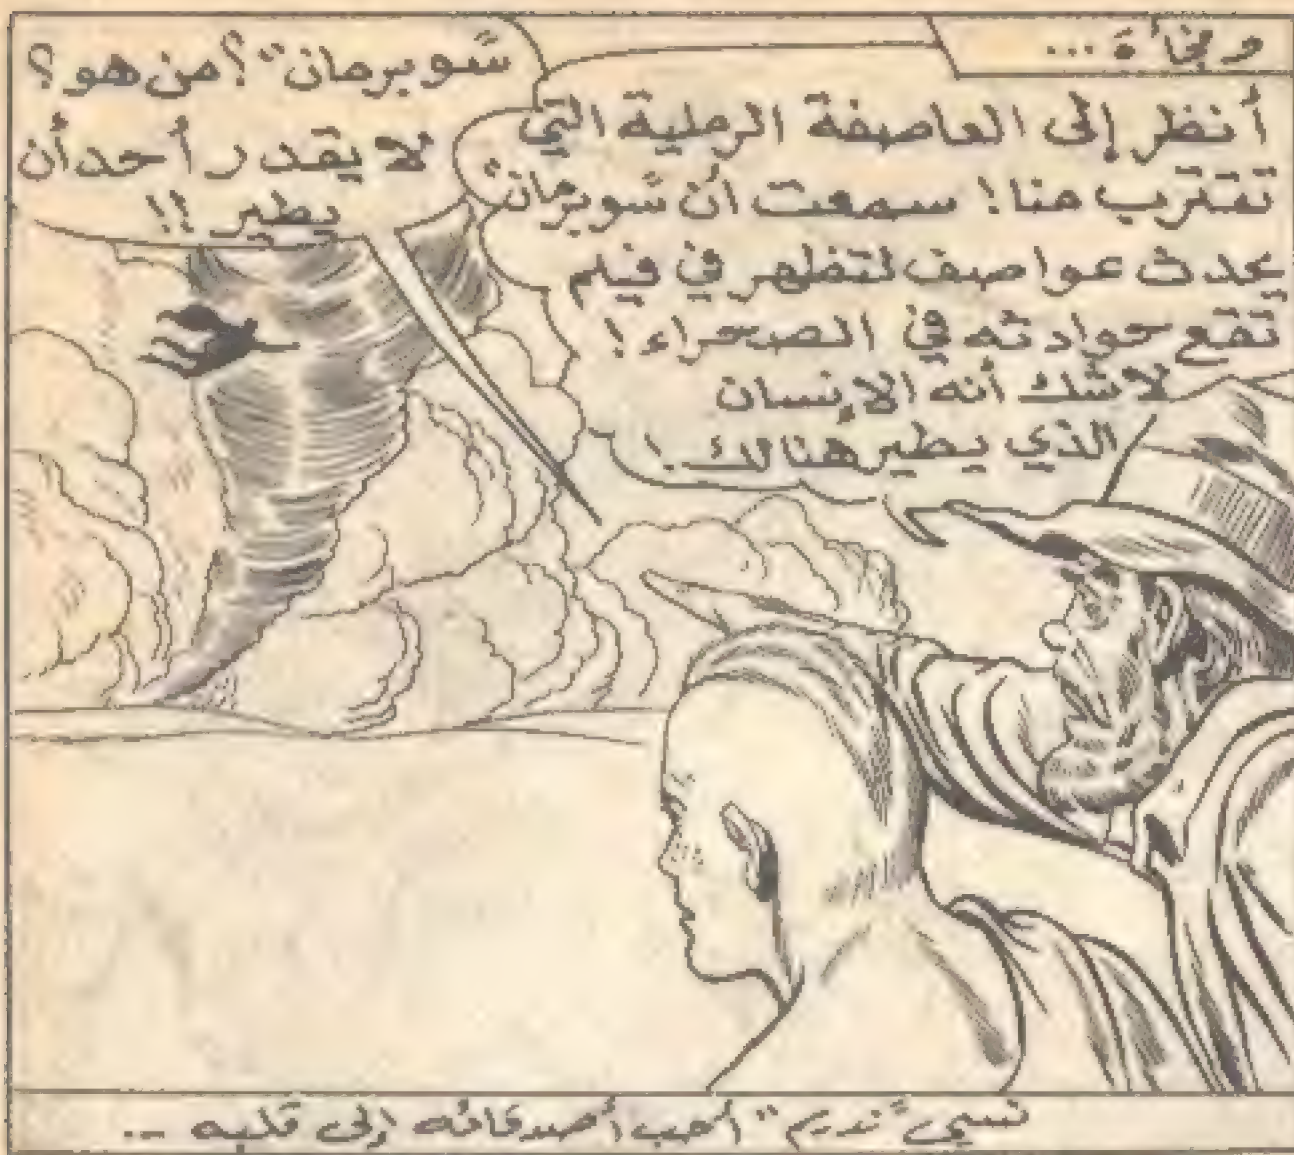 وفجأة ...
أنظر إلى العاصفة الرملية التي
تقترب منا! سمعت أن "سوبرمان"
يحدث عواصف لتظهر في فيلم
تقع حوادثه في الصحراء!
لا شك أنه الإنسان
الذي يطير هنالك!
"سوبرمان"؟ من هو؟
لا يقدر أحد أن
يطير!!
نسي "نديم" أحب أصدقائه إلى قلبه ...